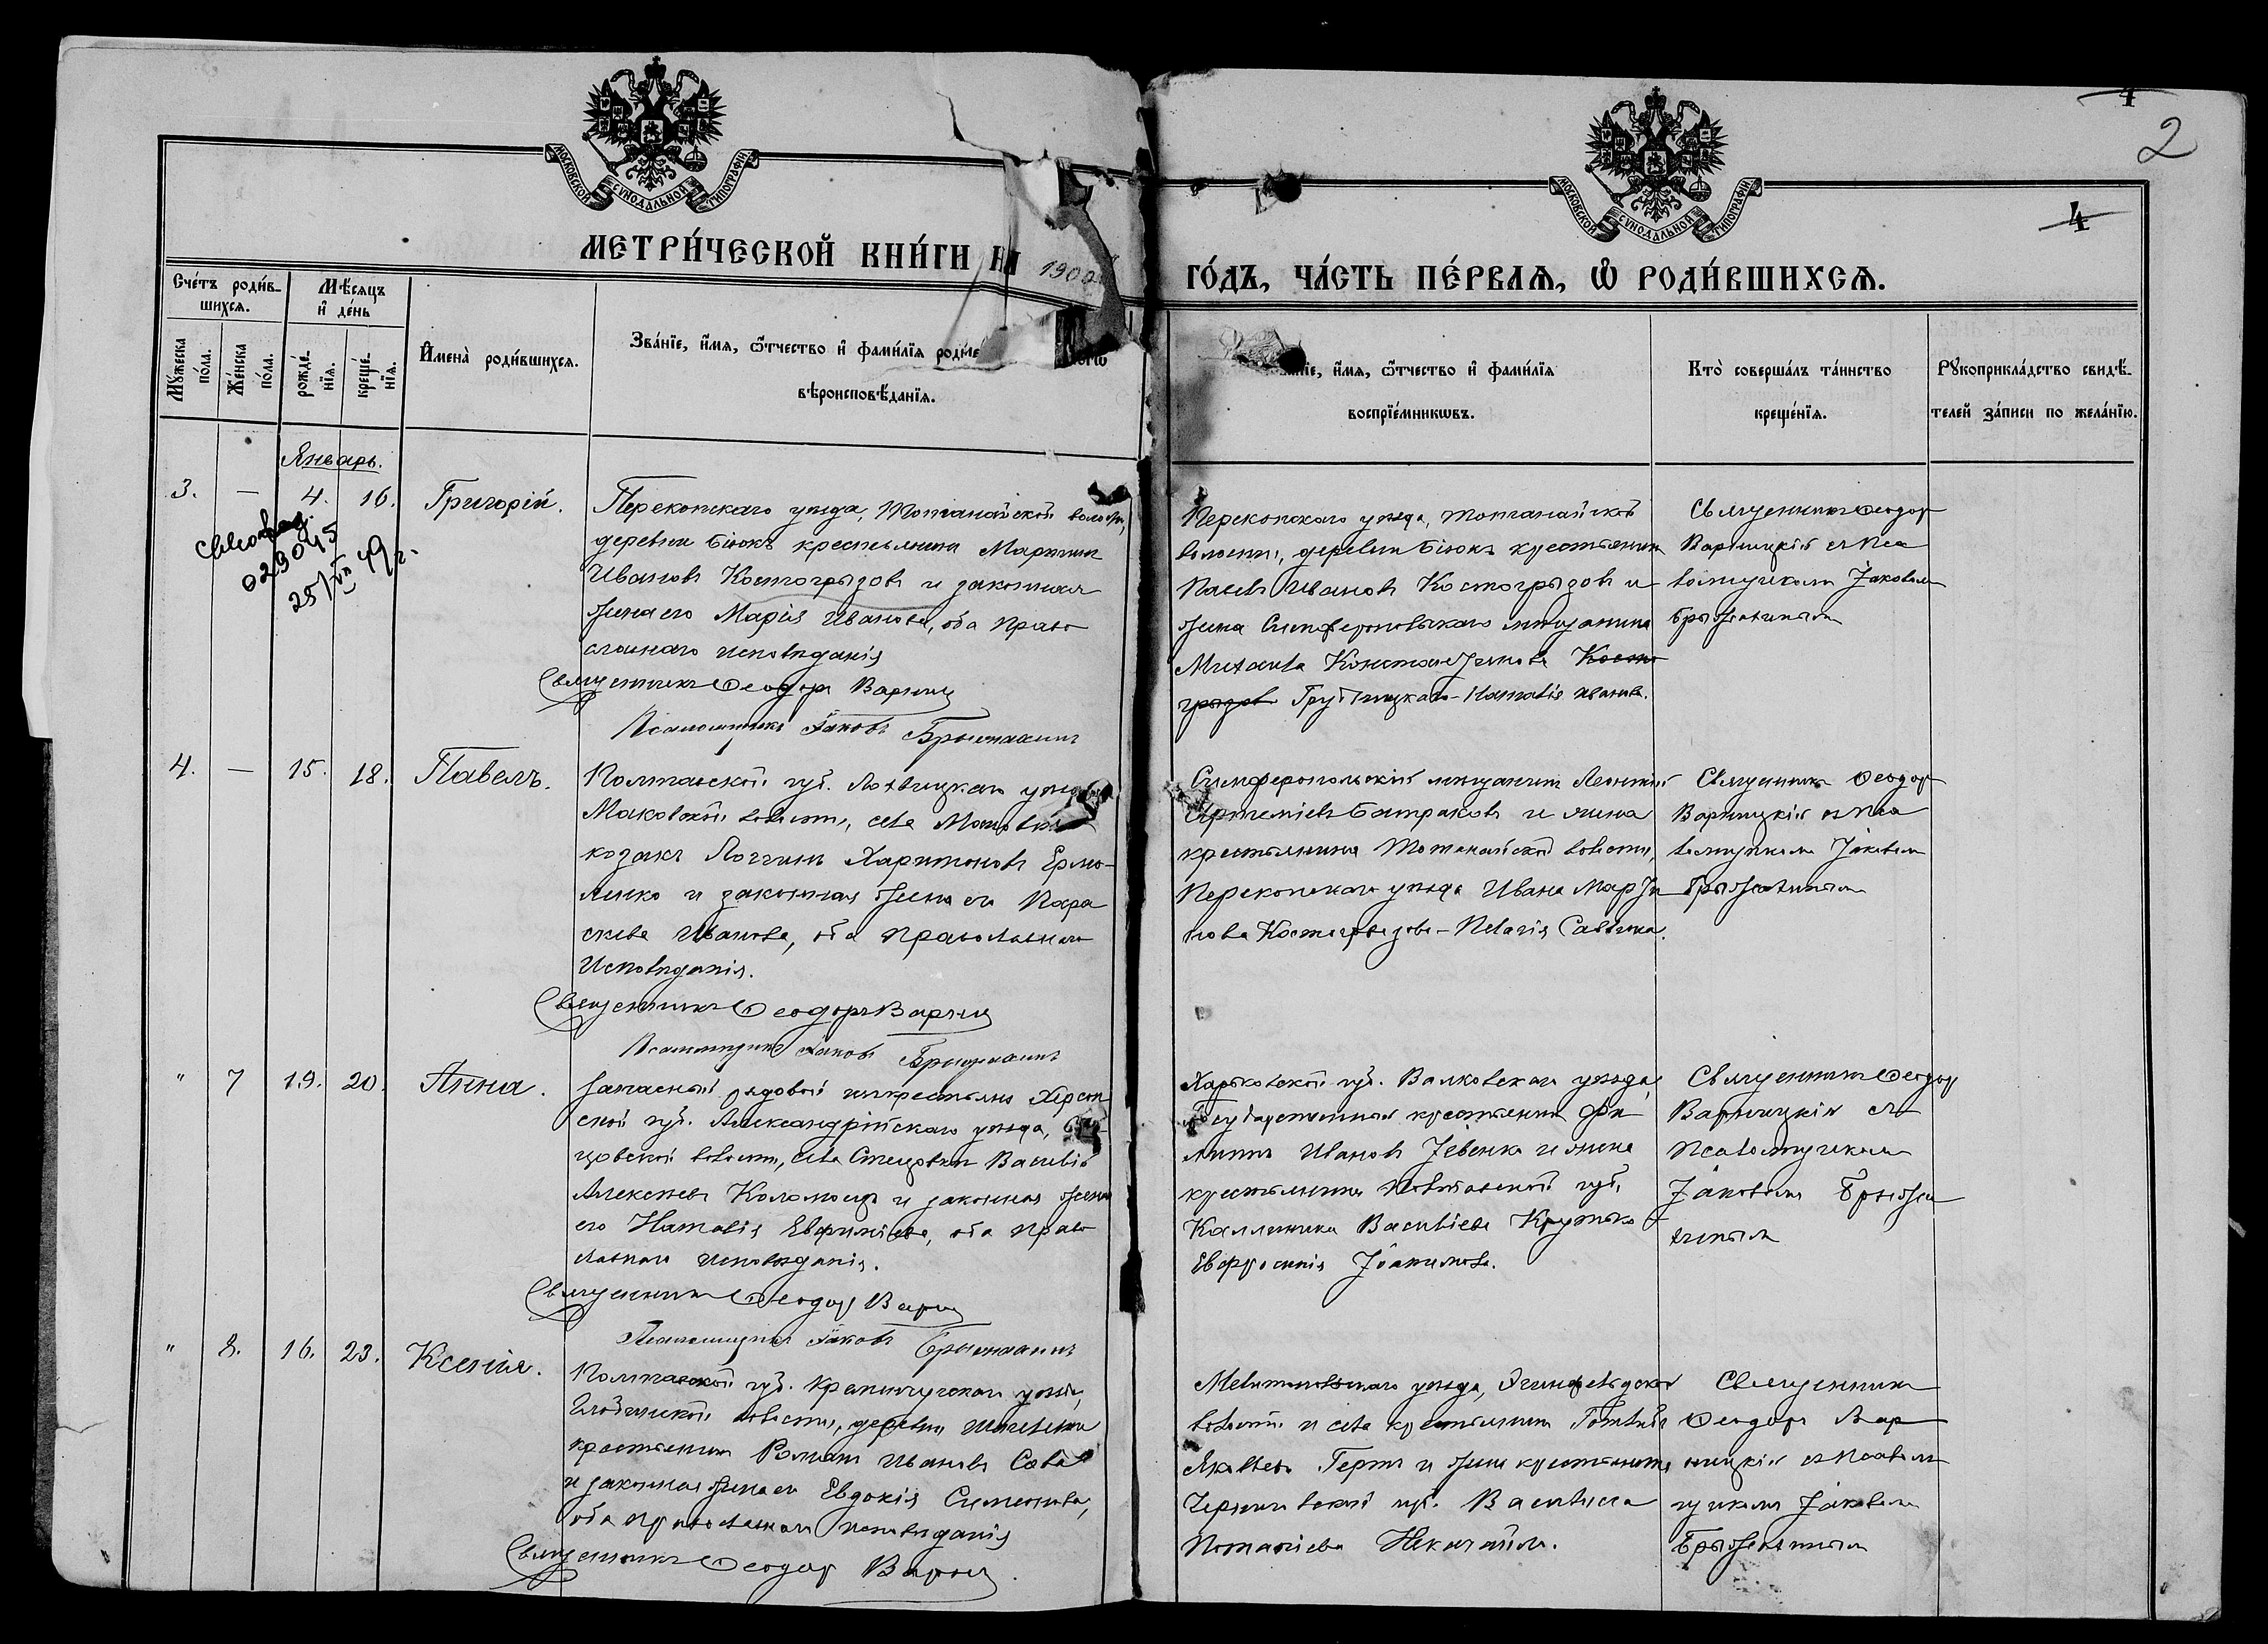 МОСКОВСКОЙ СѴНОДАЛЬНОЙ ТИПОГРАФІИ
МОСКОВСКОЙ СѴНОДАЛЬНОЙ ТИПОГРАФІИ
4
2
4
МЕТРИ́ЧЕСКОЙ КНИ́ГИ НА 1900
ГО́ДЪ, ЧА́СТЬ ПЕ́РВАЯ, Ѡ РОДИ́ВШИХСЯ.
Сче́тъ роди́в-
шихся.
Мѣ́сяцъ
и҆ де́нь
Мꙋ́жеска по́ла.
Же́нска по́ла.
рожде́нїя.
креще́нїя.
И҆мена̀ роди́вшихся.
Зва́нїе, и҆́мя, ѻ҆́тчество и҆ фами́лїя роди́те
вѣроисповѣ́данїя.
нїе, и҆́мя, ѻ҆́тчество и҆ фами́лїя
воспрїе́мникѡвъ.
Кто̀ соверша́лъ та́инство
креще́нїя.
Рꙋкоприкла́дство свидѣ́-
телей за́писи по жела́нїю.
Январь.
3. — 4. 16. Григорій.
029045
25/VII 49 г.
Перекопскаго уѣзда, Тотанайской волости,
деревни Біюкъ крестьянинъ Мартинъ
Ивановъ Костогрызовъ и законная
жена его Марія Иванова, оба право
славнаго исповѣданія
Священникъ Ѳеодоръ Варниц
Псаломщикъ Іаковъ
Перекопскаго уѣзда, Тотанайской
волости, деревни Біюкъ крестьянинъ
Павелъ Ивановъ Костогрызовъ и
жена Симферопольскаго мѣщанина
Михаила Константинова Косто
грызова Наталія Иванова.
Священникъ Ѳеодоръ
Варницкій съ Пса
ломщикомъ Іаковомъ
4. — 15. 18. Павелъ.
Полтавской губ. Лохвицкаго уѣзда
волости, села
козакъ Логгинъ Харитоновъ Ермо-
ленко и законная жена его Пара
скева Иванова, оба православнаго
Исповѣданія.
Священникъ Ѳеодоръ Варниц
Псаломщикъ Іаковъ
Симферопольскій мѣщанинъ Леонтій
Артеміевъ Батраковъ и жена
крестьянина Тотанайской волости,
Перекопскаго уѣзда Ивана Марти
нова Костогрызова - Пелагія Саввина.
Священникъ Ѳеодоръ
Варницкій съ Пса
ломщикомъ Іаковомъ
" 7 19. 20. Анна.
Запасный рядовой изъ крестьянъ Херсон
ской губ. Александрійскаго уѣзда,
цовской волости, села Стецовки Василій
Алексѣевъ Коломоецъ и законная жена
его Наталія Евфиміева, оба право
славнаго исповѣданія.
Священникъ Ѳеодоръ Варниц
Псаломщикъ Іаковъ
Харьковской губ. Валковскаго уѣзда,
Государственный крестьянинъ Фи
липпъ Ивановъ и жена
крестьянина Полтавской губ.
Каллиника Васильева
Евфросинія Іоакимова.
Священникъ Ѳеодоръ
Варницкій съ
Псаломщикомъ
Іаковомъ
" 8. 16. 23. Ксенія.
Полтавской губ. Кременчугскаго уѣзда,
волости, деревни
крестьянинъ Романъ Ивановъ
и законная жена его Евдокія Симеонова,
оба православнаго исповѣданія
Священникъ Ѳеодоръ Варниц
Мелитопольскаго уѣзда,
волости и села крестьянинъ
Яковлевъ и жена крестьянина
Черниговской губ.
Потапіева
Священникъ
Ѳеодоръ Вар
ницкій съ Псалом
щикомъ Іаковомъ